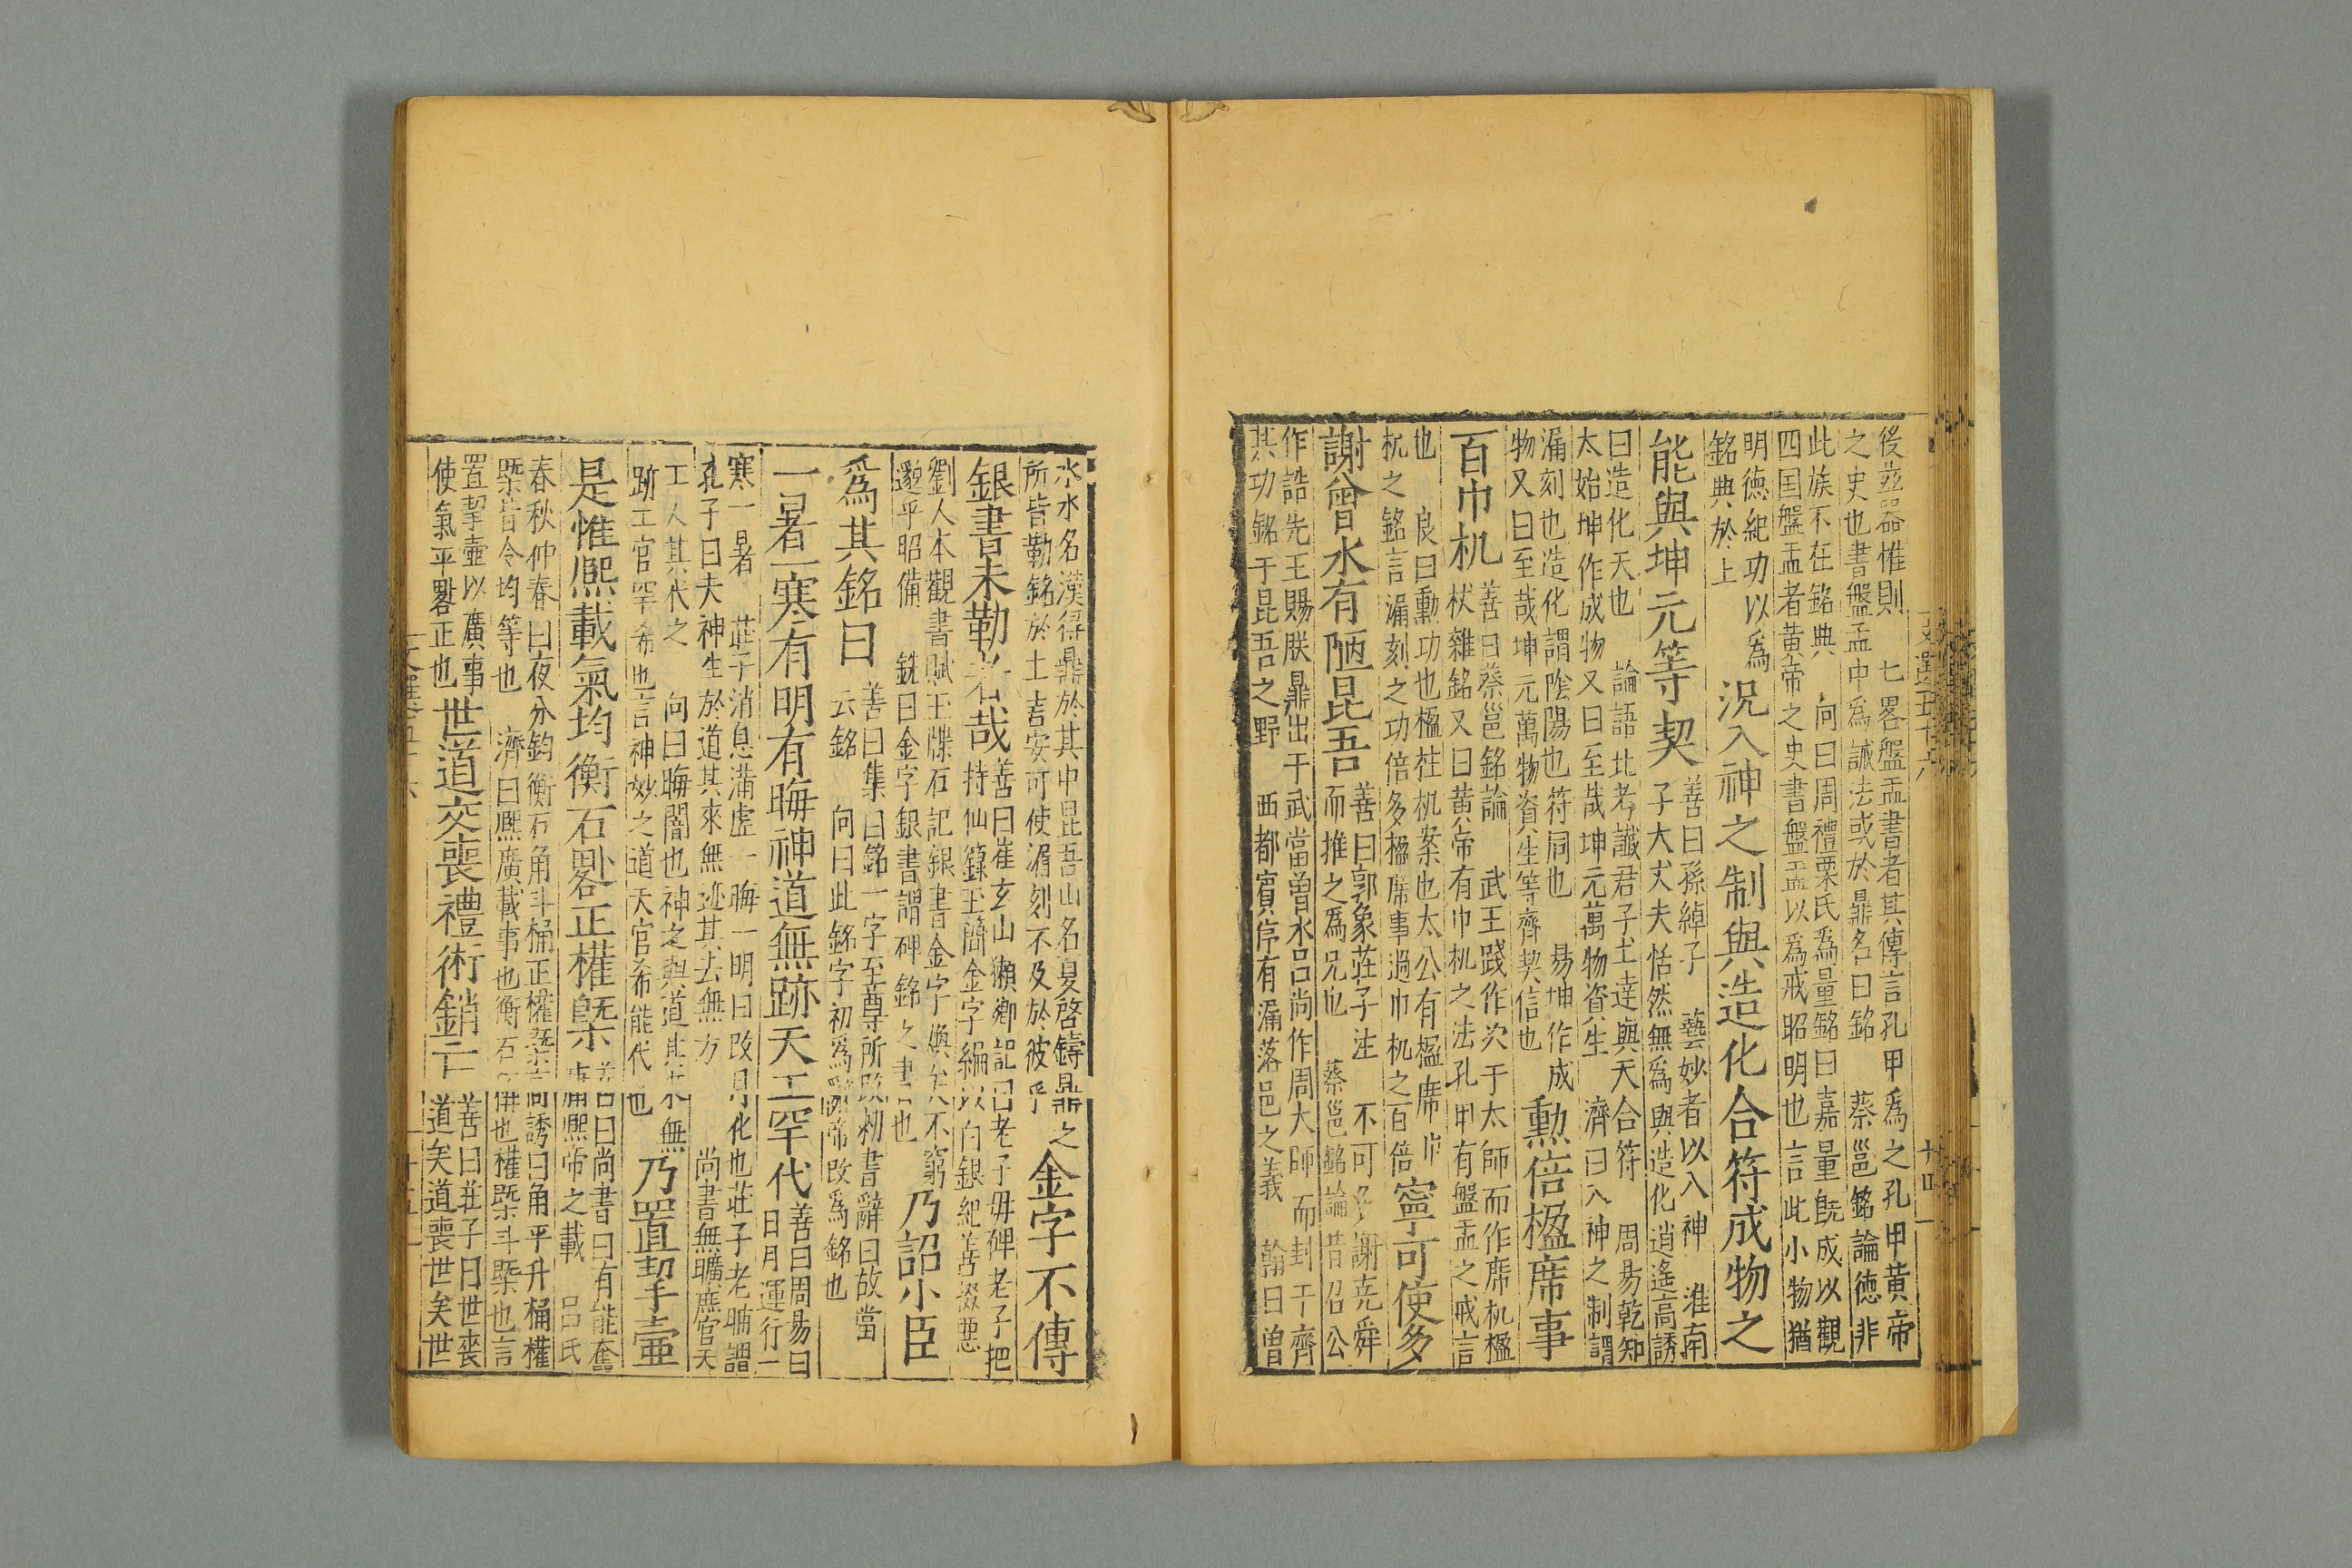 後茲器惟則　七畧盤盂書者其傳言孔甲爲之孔甲黄帝
之史也書盤盂中爲誡法或於鼎名曰銘　蔡邕銘論德非
此族不在銘典　向曰周禮栗氏爲量銘曰嘉量旣成以觀
四国盤盂者黄帝之史書盤盂以爲戒昭明也言此小物猶
明德紀功以爲
銘典於上
況入神之制與造化合符成物之
能與坤元等契
善曰孫綽子　藝妙者以入神　淮南
子大丈夫恬然無爲與造化逍遙高誘
曰造化天也　論語比考讖君子上達與天合符　周易乾知
太始坤作成物又曰至哉坤元萬物資生　濟曰入神之制謂
漏刻也造化謂陰陽也符同也　易坤作成
物又曰至哉坤元萬物資生等齊契信也
勳倍楹席事
百巾机
善曰蔡邕銘論　武王踐作次于太師而作席机楹
杖雜銘又曰黄帝有巾机之法孔甲有盤盂之戒言
也　良曰勳功也楹柱机案也太公有楹席
机之銘言漏刻之功倍多楹席事過巾机之百倍
寧可使多
謝曾水有陋昆吾
善曰郭象莊子注　不可多謝堯舜
而推之爲兄也　蔡邕銘論昔召公
作誥先王賜朕鼎出于武當曽水吕尚作周大師而封于齊
其功銘于昆吾之野　西都賔序有漏落邑之義　翰曰曽
水水名漢得鼎於其中昆吾山名夏啓鑄鼎之
所皆勒銘於上言安可使漏刻不及於彼乎
金字不傳
銀書未勒者哉
善曰崔玄山瀨鄉記曰老子毋碑老子把
持仙籙玉簡金字編以白銀紀善綴惡
劉人本觀書賦玉牒石記銀書金字煥矣不窮
邈乎昭備　銑曰金字銀書謂碑銘之書也
乃詔小臣
爲其銘曰
善曰集曰銘一字至尊所改勑書辭曰故當
云銘　向曰此銘字初爲辭帝改爲銘也
一暑一寒有明有晦神道無跡天工罕代
善曰周易曰
日月運行一
寒一暑　莊子消息滿虛一晦一明日改月化也莊子老聃謂
孔子曰夫神生於道其來無迹其去無方　尚書無曠庶官天
工人其代之　向曰晦闇也神之與道其來無
跡工官罕希也言神妙之道天官希能代也
乃置挈壷
是惟熈載氣均衡石晷正權槩
善曰尚書曰有能奮
庸熈帝之載　吕氏
春秋仲春曰夜分鈞衡石角斗桶正權槩高誘曰角平升桶權
槩皆令均等也　濟曰熈廣載事也衡石
置挈壷以廣事
使氣平晷正也
世道交喪禮術銷亡
善曰莊子曰世喪
道矣道喪世矣世